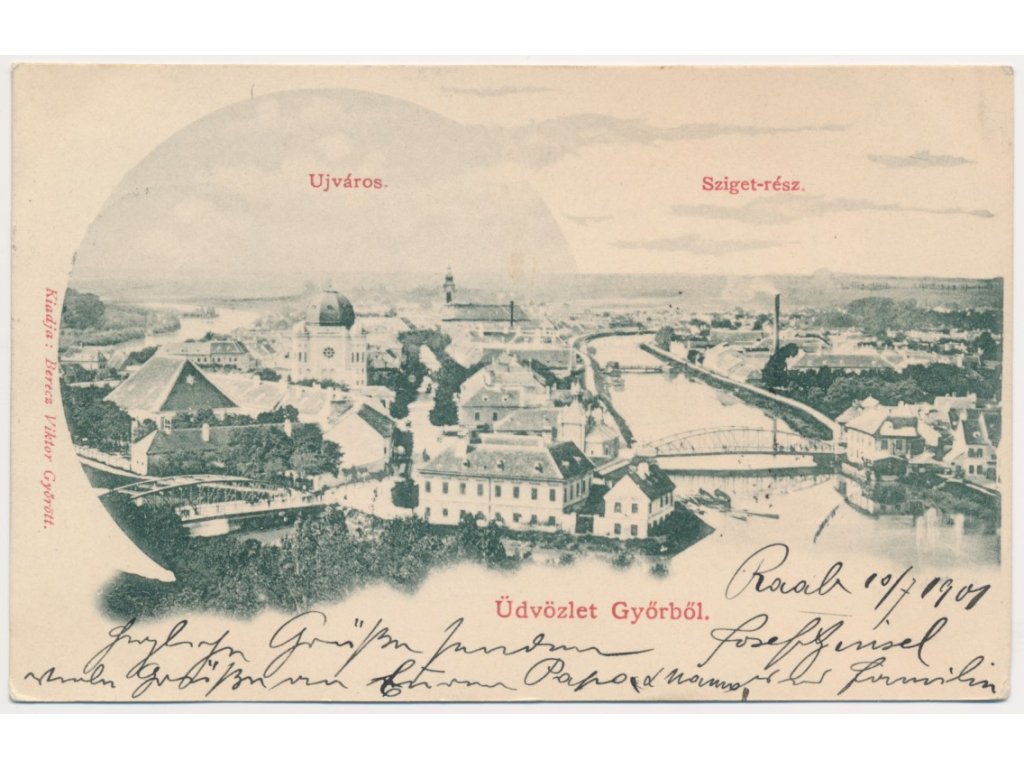 Ujváros.
Sziget-rész.
Kiadja: Berecz Viktor Győrött.
Üdvözlet Győrből.
Raab 10/7 1901
Herzliche Grüße senden Josef
viele Grüße an Eurem Papa & Mama Familie